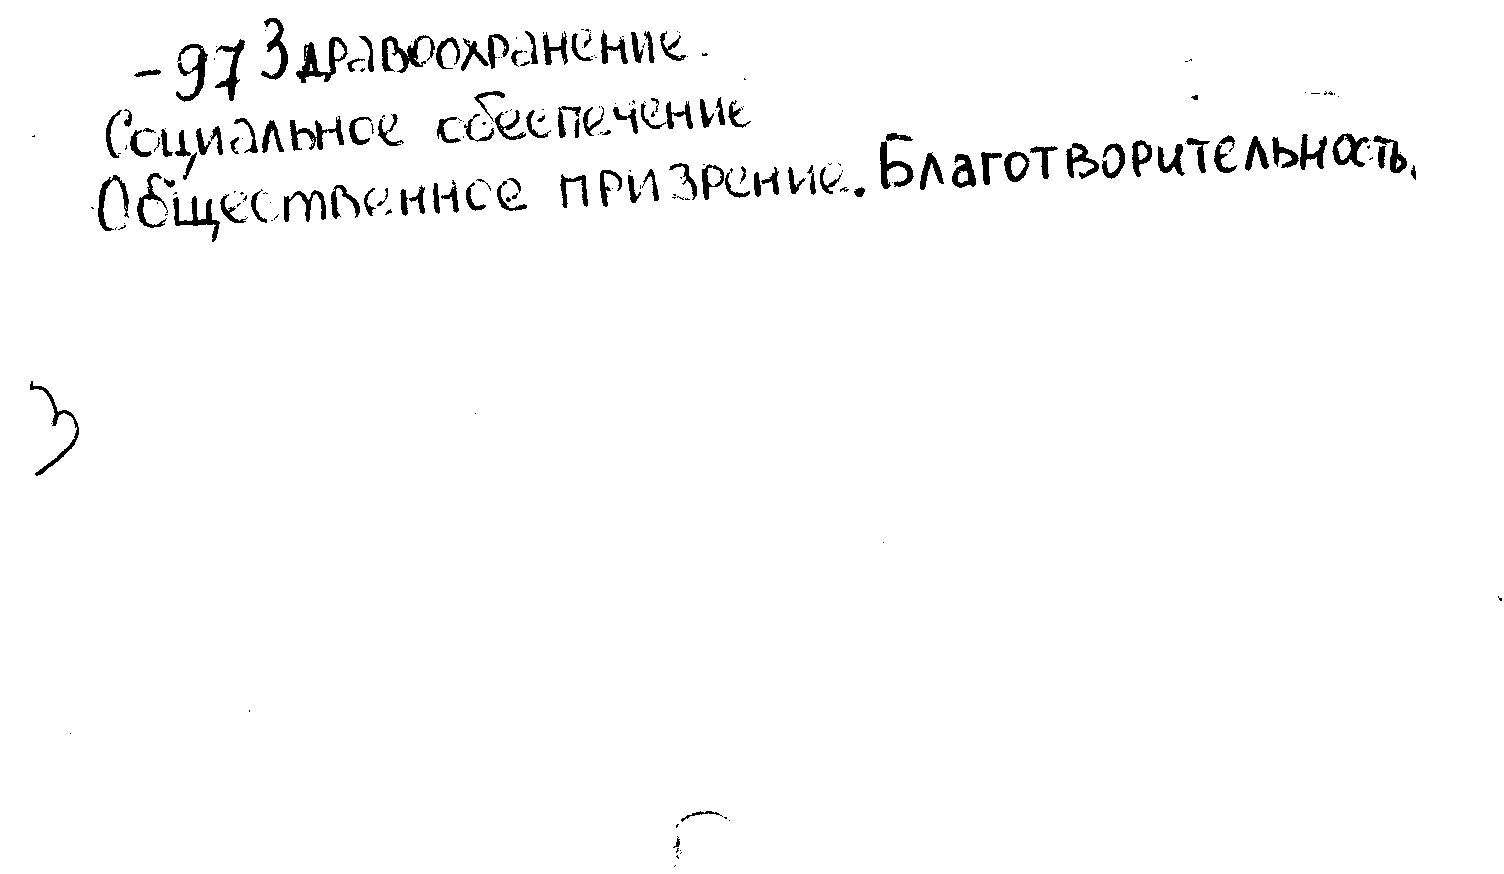 -97 Здравоохранение.
Социальное обеспечение
Общественное призрение. Благотворительность.
З